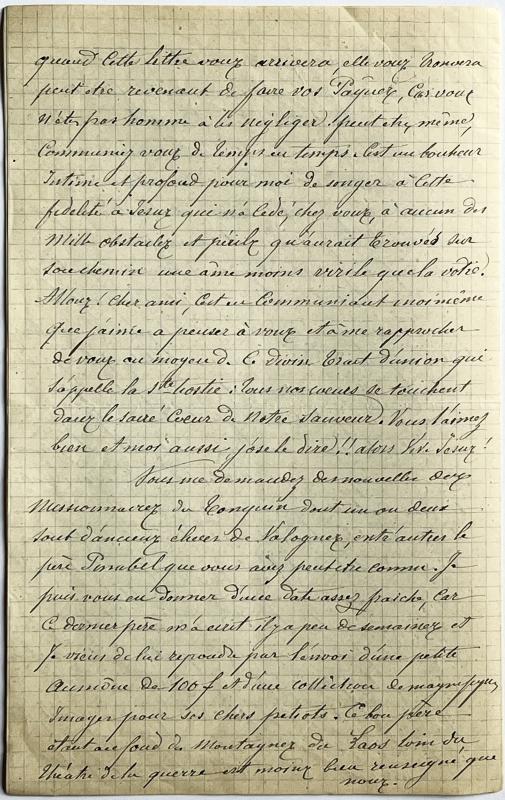 quand cette lettre vouz arrivera, elle vouz trouvera
peut etre revenant de faire vos Pâquez, Car vouz
N'êtes pas homme à les négliger! peut etre même,
Communiez vouz de temps en temps. C'est un bonheur
Intime et profond pour moi de songer à Cette
fidelité à Jésuz qui n'a cédé, chez vouz, à aucun des
Mille obstaclez et périlz qu'aurait trouvés sur
son chemin une âme moins virile que la votre!
Allouz! Cher ami, C'est en Communiant moi même
que j'aime a penser à vouz et à me rapprocher
de vouz au moyen de Ce divin trait d'union qui
s'appelle la Ste hostie: tous nos cœurs se touchent
danz le sacré Cœur de Notre Sauveur. Vous l'aimez
bien et moi aussi j'ose le dire!! alors Vive Jésuz!
Vous me demandez des nouvelles dez
Missionnairez du Tonquin dont un ou deux
sont d'ancienz élèves de Valognez, entr'autres le
père Pinabel que vous avez peut etre connu. Je
puis vous en donner d'une date assez fraiche, car
Ce dernier père m'a ecrit il y a peu de semainez et
Je viens de lui repondre par l'envoi d'une petite
aumône de 100 f et d'une collection de magnifiques
Images pour ses chers petiots. Ce bon père
étant au fond des Montagnez du Laos loin du
théatre de la guerre est moinz bien renseigné que
nouz.